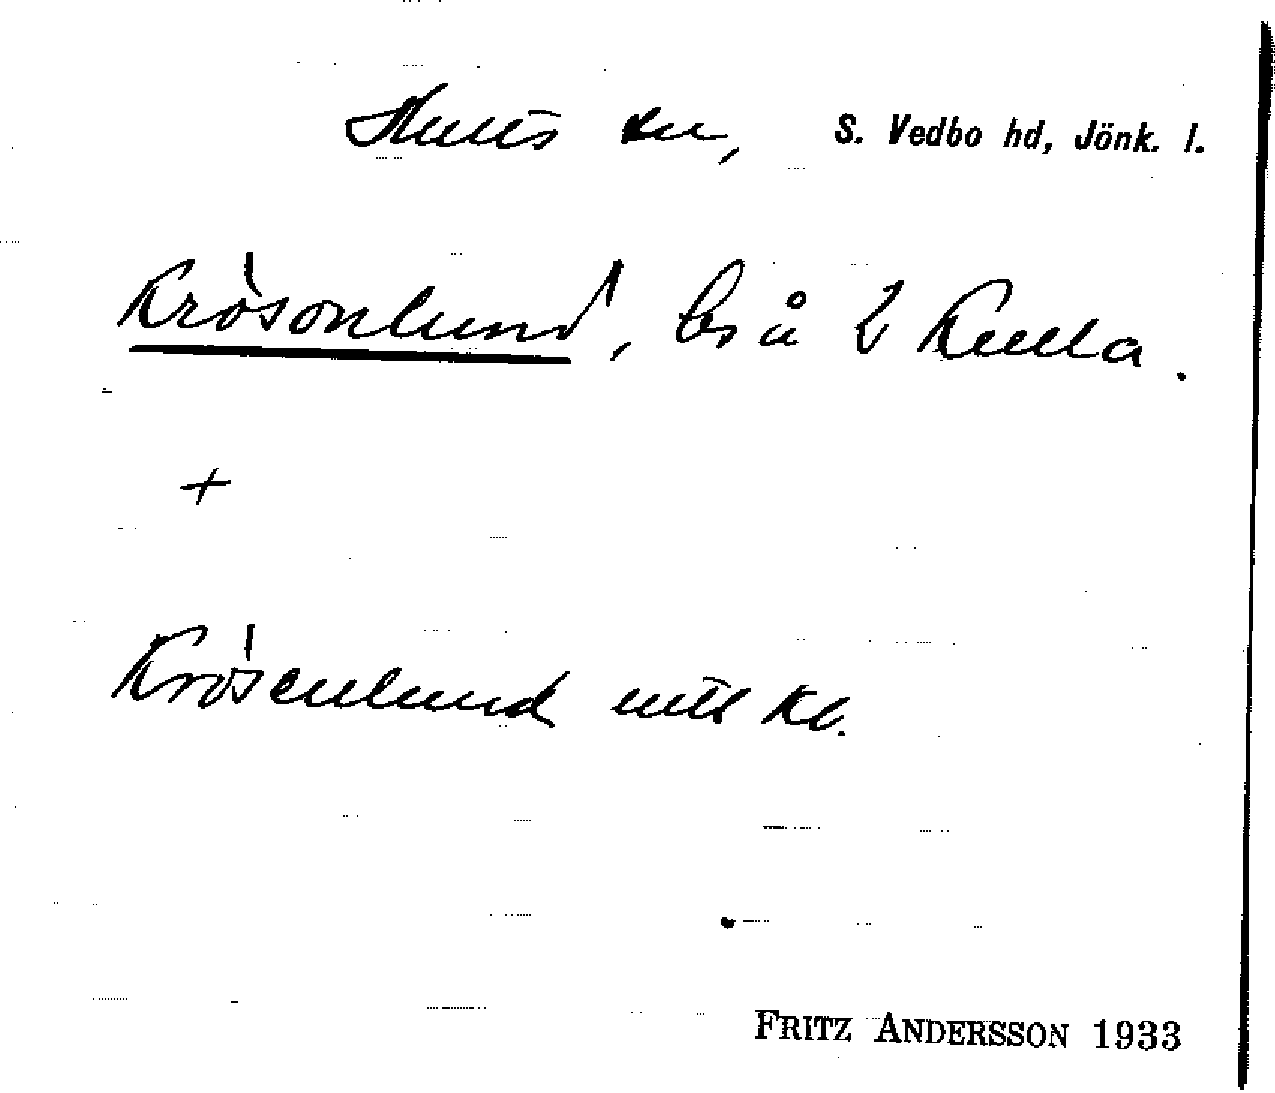 Hults sn, S. Vedbo hd, Jönk. l.
Krösönlund, bs å 2 Kulla.
+
Krösenlund utt kl.
FRITZ ANDERSSON 1933